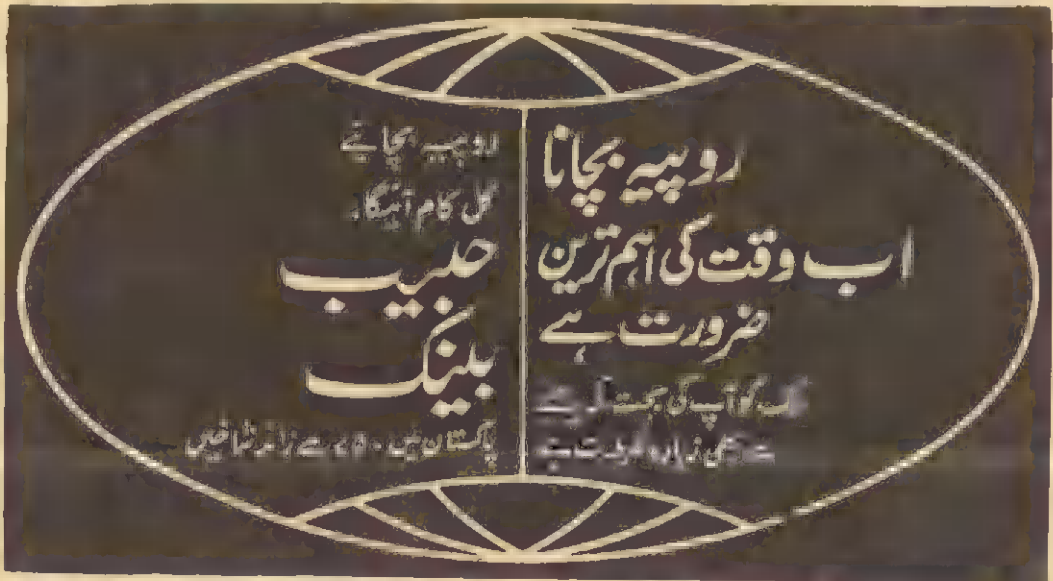 روپیہ بچانا
اب وقت کی اہم ترین
ضرورت ہے
کو آپ کی بچت
روپیہ بچائیے
کل کام آئیگا۔
حبیب
بینک
پاکستان میں سے زائد شاخیں